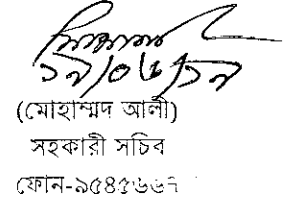 ১৯/০৬/১৯
(মোহাম্মদ আলী)
সহকারী সচিব
ফোন-৯৫৪৫৬৬৭